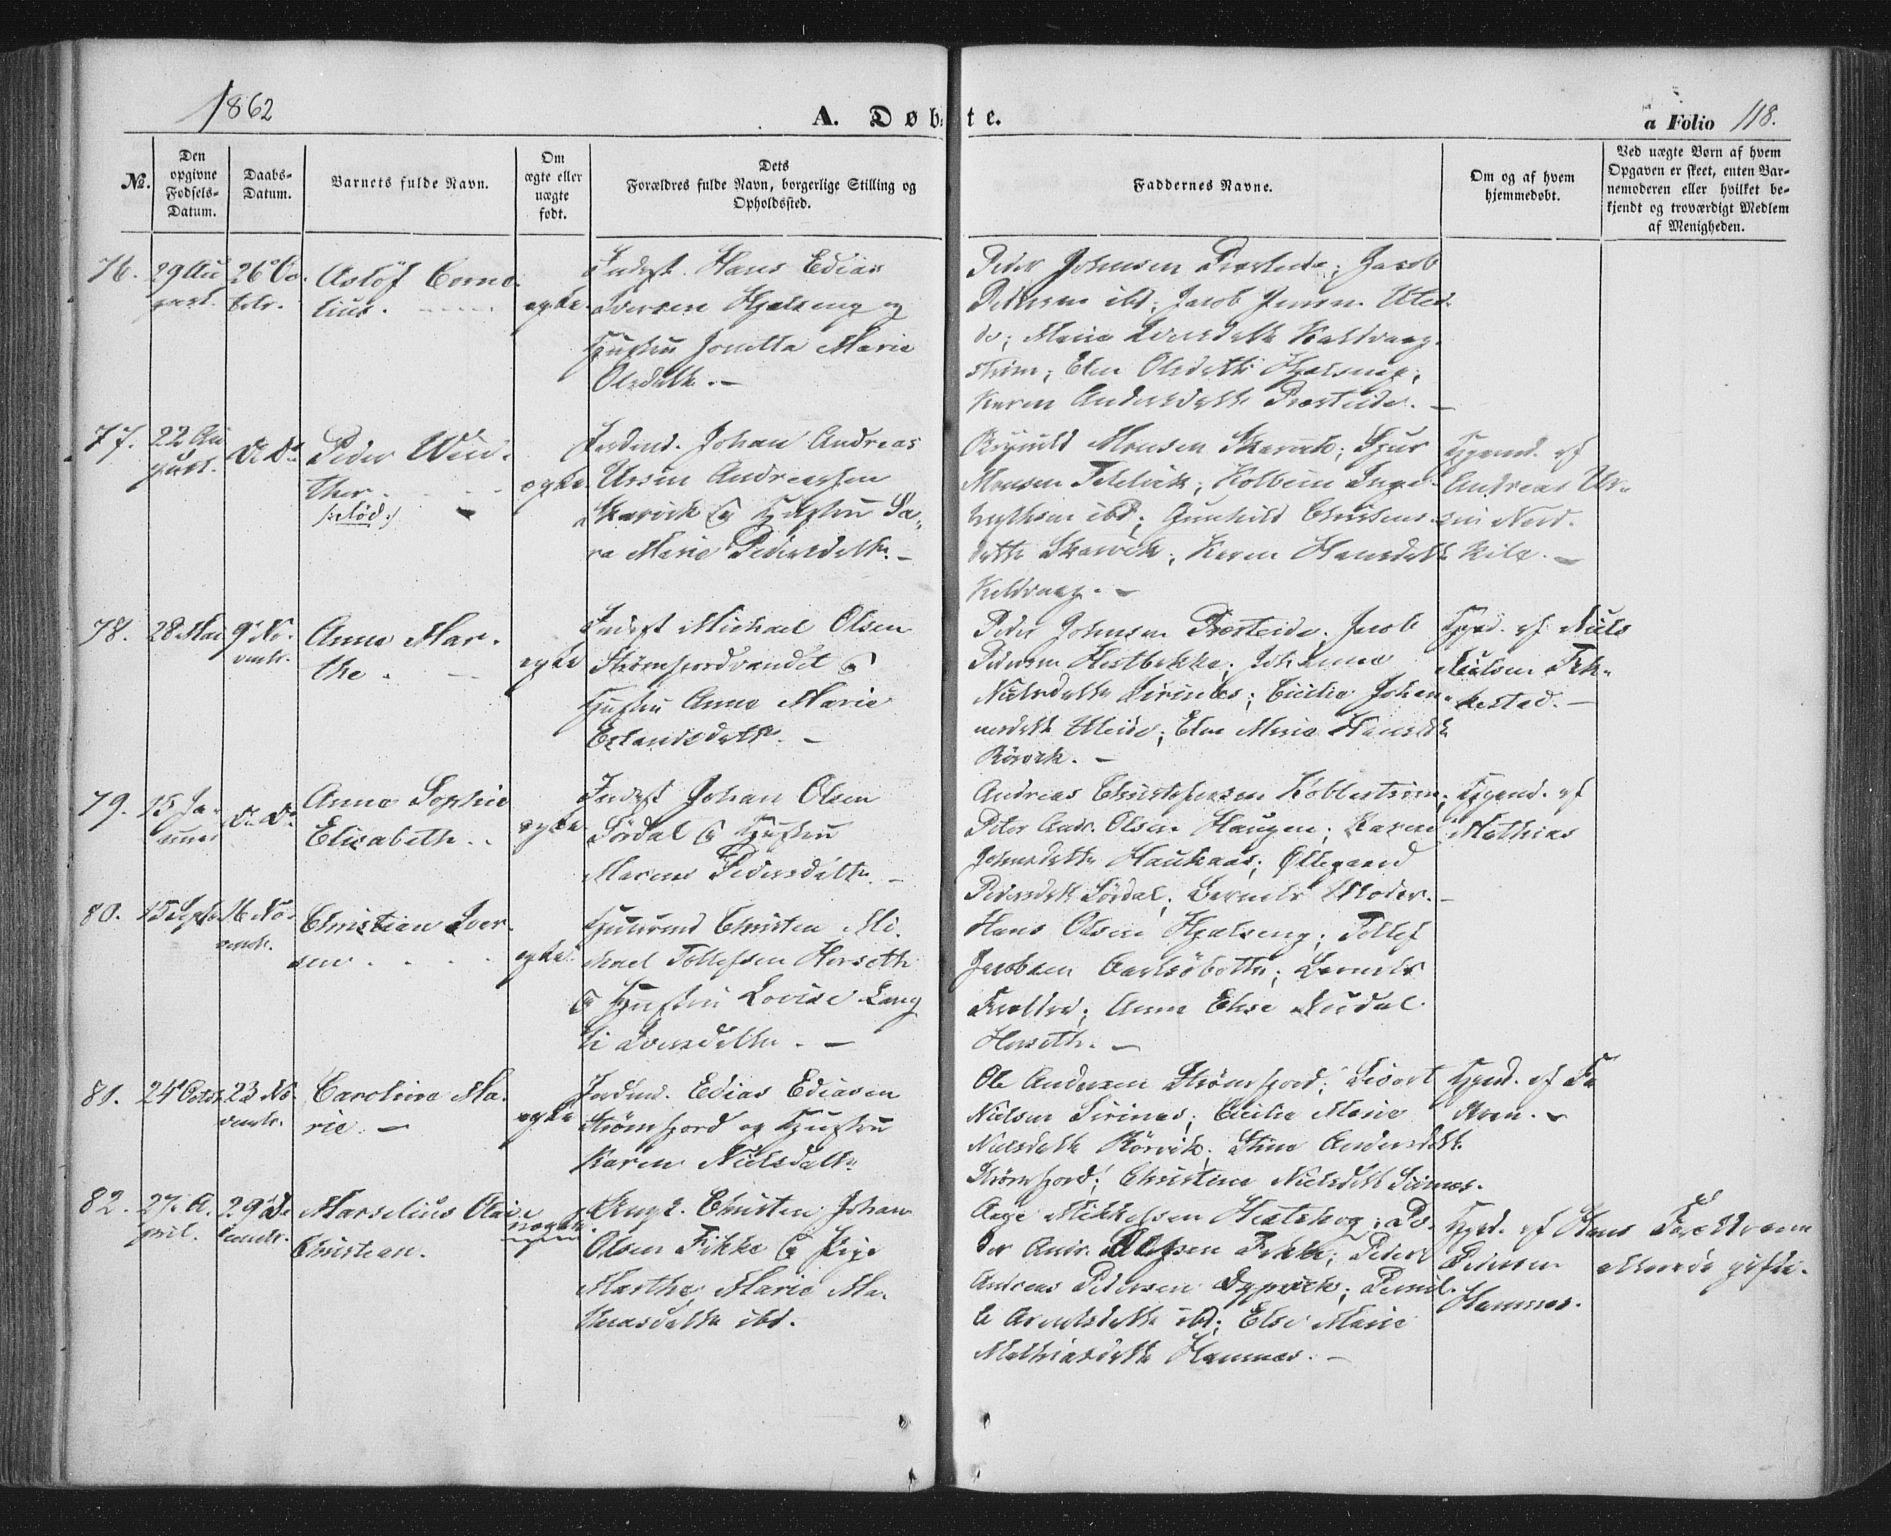 1862
A. Døbte.
a Folio 118.
No.
Den opgivne Fødsels-Datum.
Daabs-Datum.
Barnets fulde Navn.
Om ægte eller uægte født.
Dets Forældres fulde Navn, borgerlige Stilling og Opholdssted.
Faddernes Navne.
Om og af hvem hjemmedøbt.
Ved uægte Børn af hvem Opgaven er skeet, enten Barnemoderen eller hvilket bekjendt og troværdigt Medlem af Menigheden.
76.
29 Au
gust.
26 Oc
tobr.
Asløf Corne
lius.
ægte
Inderst. Hans Edias
Iversen Hjelseng og
Hustru Jonetta Marie
Olsdatter.
Peder Johnsen Præsteide; Jacob
Pedersen ibd; Jacob Jensen Ulei
de; Maria Iversdatt Kaldvaag
strøm; Elen Olsdatt Hjelseng;
Karen Andersdatt Præsteide.
77.
22 Au
gust.
D. D.
Peder Win
ther.
ægte
Johan Andreas
Ursin Andreassen
Skarvik og Hustru Sa
ra Marie Pedersdatter.
Monsen Skarvik; Sjur
Monsen; Kolbein Inge
brigtsen ibd; Gunhild Christens
datter Skarvik; Karen Hansdatt
Keldvaag.
Hjemd. af
Andreas Ur
sin Nord
kil.
78.
28 Mai
9 No
vembr.
Anne Mar
the.
ægte
Inderst Michael Olsen
Strømfjordvandet &
Hustru Anne Marie
Erlandsdatter.
Peder Johnsen Præsteide; Jacob
Pedersen Hestbakke; Johanna
Nielsdatter Sirines; Cicilie Johan
nesdatt Uleide; Elen Maria Hansdtr
Rørvik.
Hjemd. af Niels
Nielsen Fik
kestad.
79.
15 Ja
nuar
D. D.
Anne Sophie
Elisabeth.
ægte
Inderst Johan Olsen
Sørdal & Hustru
Maren Pedersdatter.
Andreas Christophersen Kobbertstrøm;
Peter Andr. Olsen Haugen; Karen
Johnsdatter Haukaas; Ollegaard
Pedersdatt Sørdal; Barnets Moder.
Hjemd. af
Mathias
80.
15 Septbr
16 No
vembr.
Christian Iver
sen
ægte
Christen Mi
chael Tollefsen Horseth
& Hustru Lovise Lang
li Iversdatter.
Hans Olsen Hjelseng; Tollef
Jacobsen; Barnets
Forældre; Anne Elise Rudal
Horseth.
81.
24 Octbr
23 No
vembr.
Caroline Ma
rie
ægte
Edias Ediasen
Strømfjord og Hustru
Karen Nielsdatter
Ole Andersen Strømfjord; Sivert
Nielsen Sirines; Cicilie Marie
Nielsdatter Rørvik; Stina Andersdatt
Strømfjord; Christine Nielsdatt Sirines.
Hjemd. af Fa
deren.
82.
27 A
pril.
29 De
cembr.
Marselius Olai
Christian.
uægte
Ungk. Christen Johan
Olsen Fikke & Pige
Marthe Marie Ma
thiasdatter ibd.
Aage Mikkelsen; Pe
der Andr. Olsen Fikke; Peder
Andreas Pedersen Dypvik; Pernil
le Arentsdatter ibd; Else Marie
Mathiasdatter Hamnes.
Hjemd. af Hans
Pedersen
Hamnes.
Forældrene
allerede gifte.